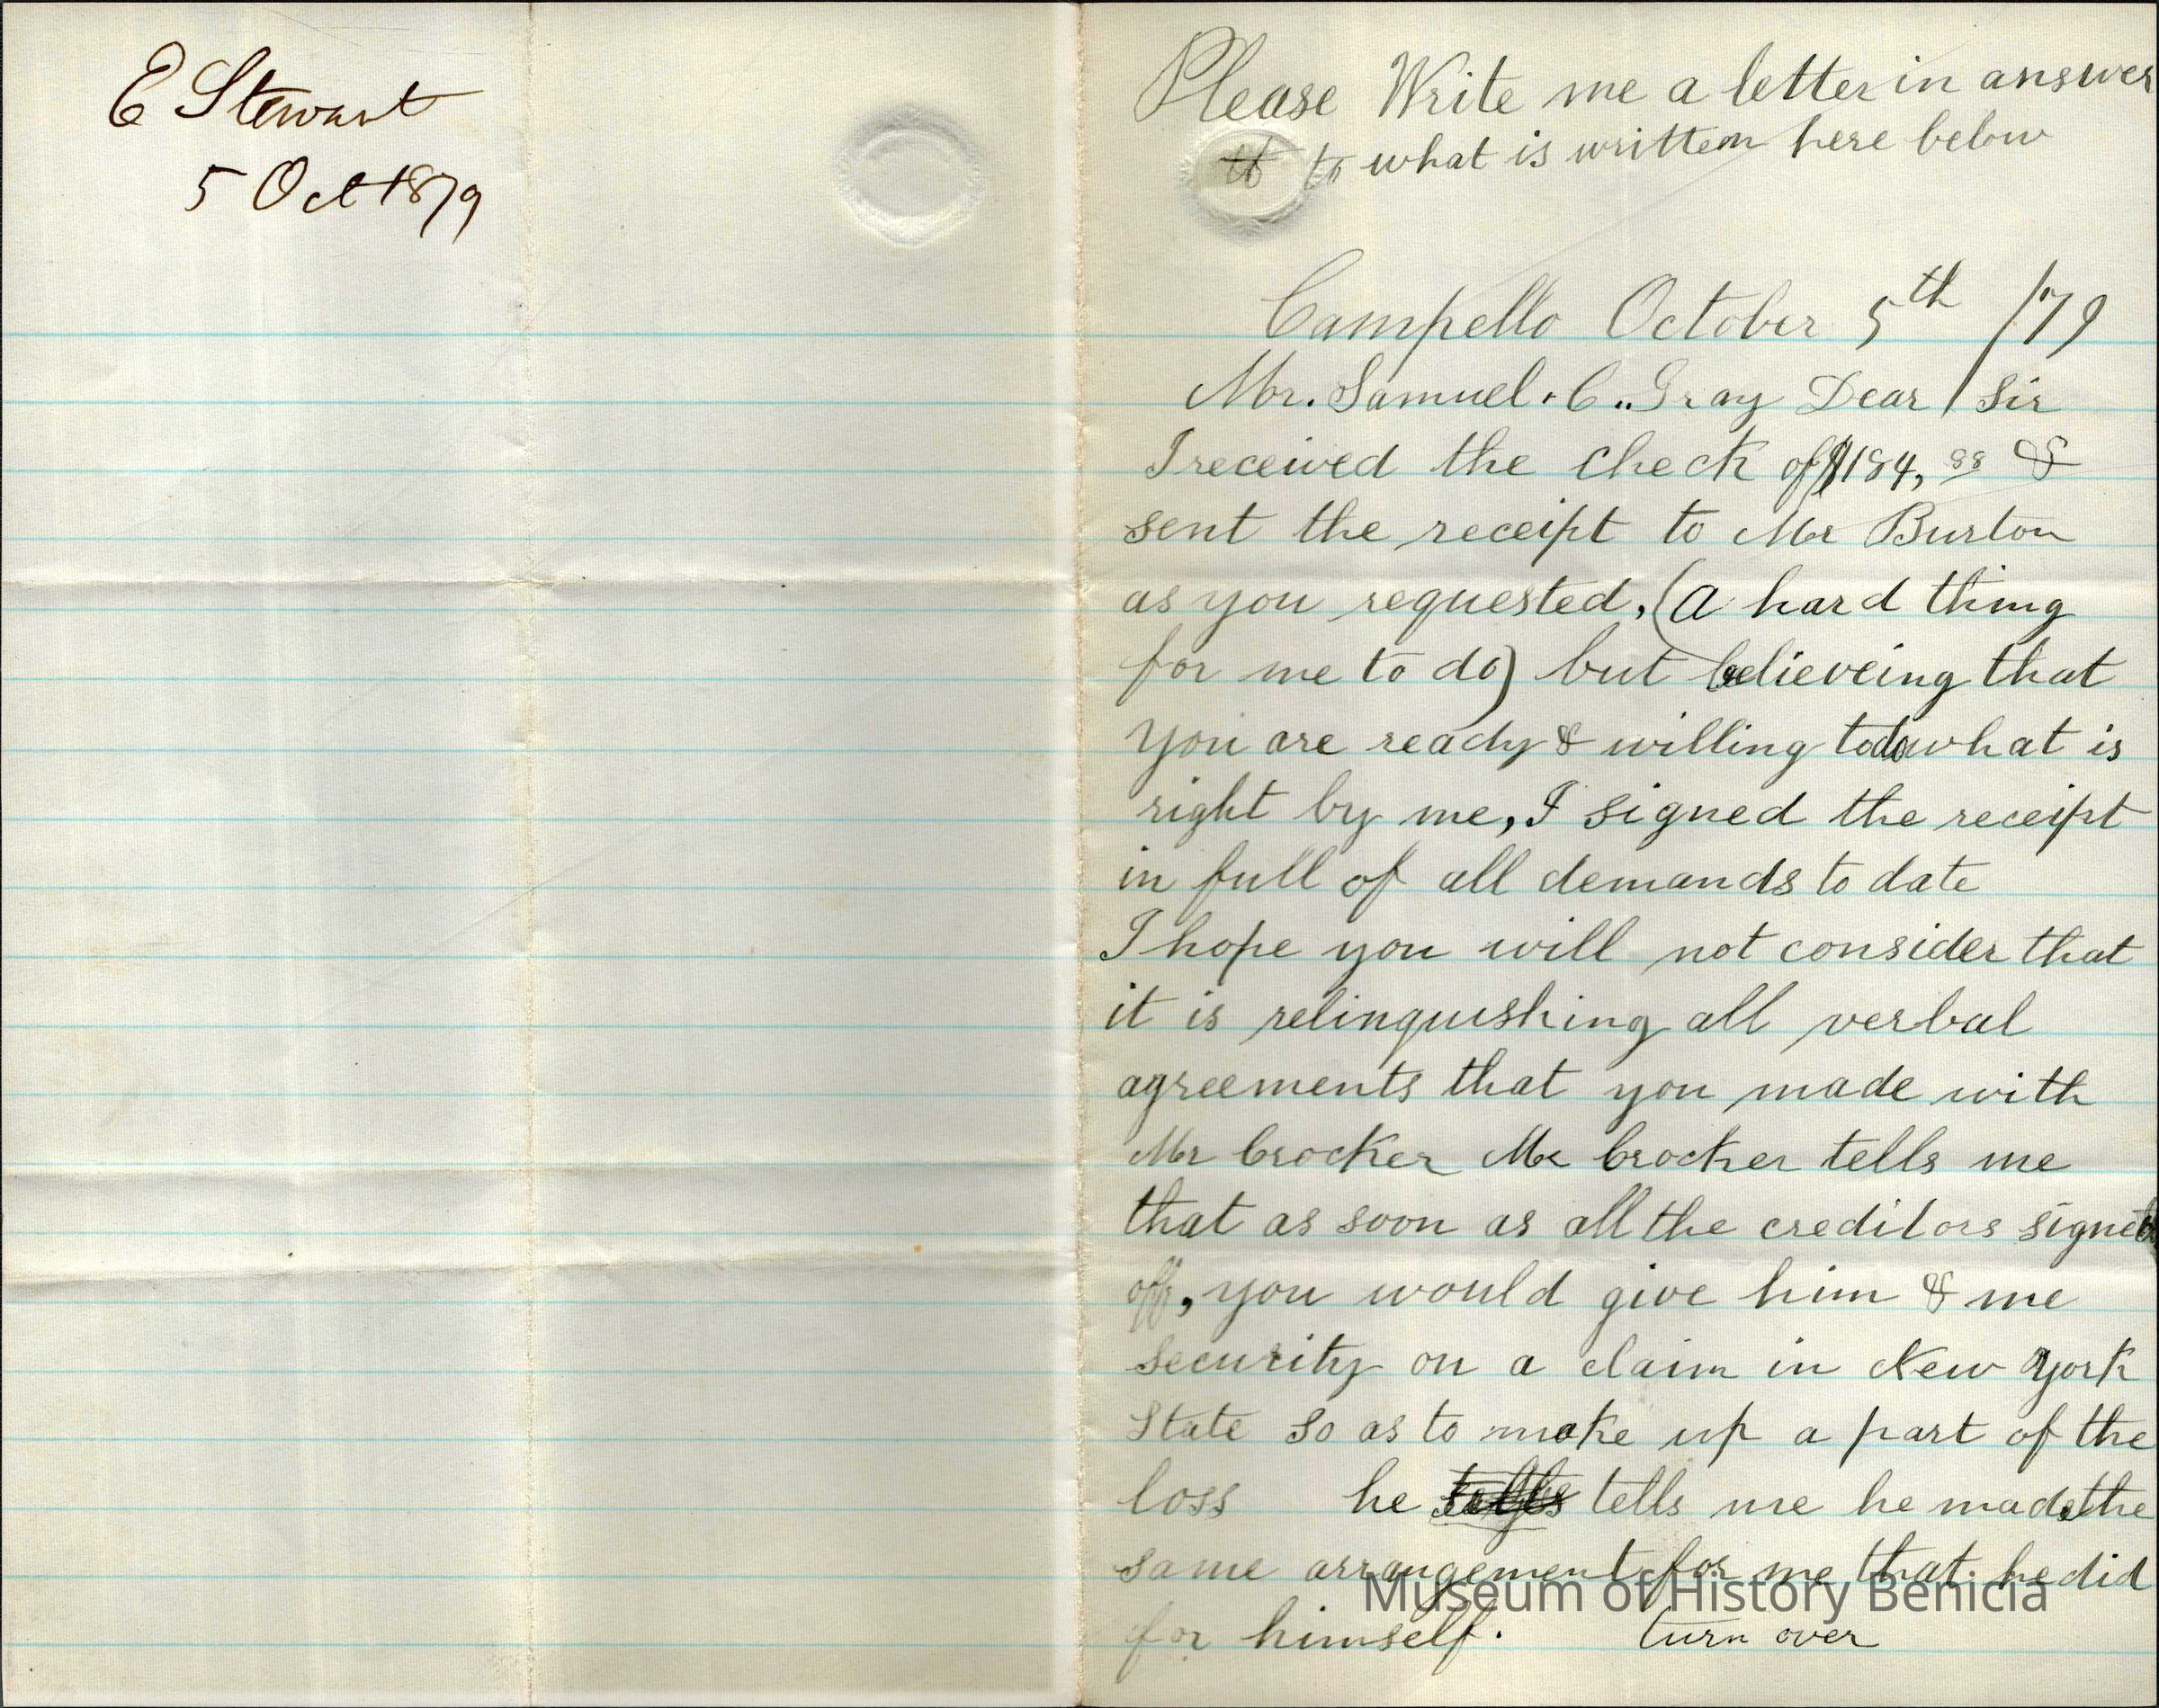 E Stewart
5 Oct 1879
Please Write me a letter in answer
to what is written here below
Campello October 5th /79
Mr. Samuel. C.. Gray Dear / Sir
I received the check of $184, 88 &
sent the receipt to Mr Burton
as you requested, (A hard thing
for me to do) but believeing that
you are ready & willing to do what is
right by me, I signed the receipt
in full of all demands to date
I hope you will not consider that
it is relinquishing all verbal
agreements that you made with
Mr Crocker Mr Crocker tells me
that as soon as all the creditors signed
off, you would give him & me
security on a claim in New York
State so as to make up a part of the
loss he tells me he made the
same arrangement for me that he did
for himself. turn over
Museum of History Benicia